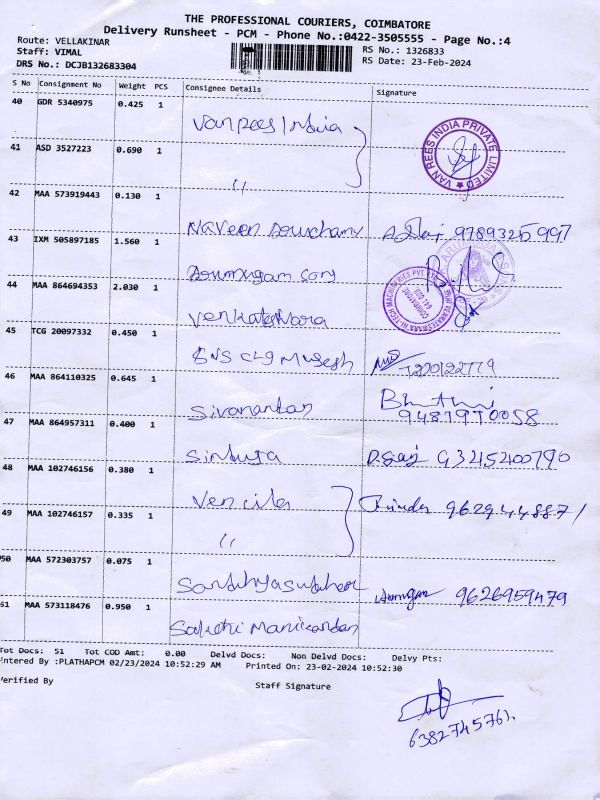 THE PROFESSIONAL COURIERS, COIMBATORE
Delivery Runsheet - PCM - Phone No.:0422-3505555 - Page No.:4
Route: VELLAKINAR
RS No.: 1326833
Staff: VIMAL
RS Date: 23-Feb-2024
DRS No.: DCJB132683304
S No Consignment No Weight PCS Consignee Details Signature
40 GDR 5340975 0.425 1
Van Rees India
VAN REES INDIA PRIVATE LIMITED
41 ASD 3527223 0.690 1
"
42 MAA 573919443 0.130 1
Naveen 9789325997
43 IXM 505897185 1.560 1
Arumugam
44 MAA 864694353 2.030 1
Venkateshvara
45 TCG 20097332 0.450 1
SNS Clg Mugesh
46 MAA 864110325 0.645 1
Sivanandan
47 MAA 864957311 0.400 1
Sinduja 9345200790
48 MAA 102746156 0.380 1
Vencila 9629444887
49 MAA 102746157 0.335 1
"
50 MAA 572303757 0.075 1
9626959479
51 MAA 573118476 0.950 1
Sakthi Manikandan
Tot Docs: 51 Tot COD Amt: 0.00 Delvd Docs: Non Delvd Docs: Delvy Pts:
ntered By :PLATHAPCM 02/23/2024 10:52:29 AM Printed On: 23-02-2024 10:52:30
erified By
Staff Signature
6382745761